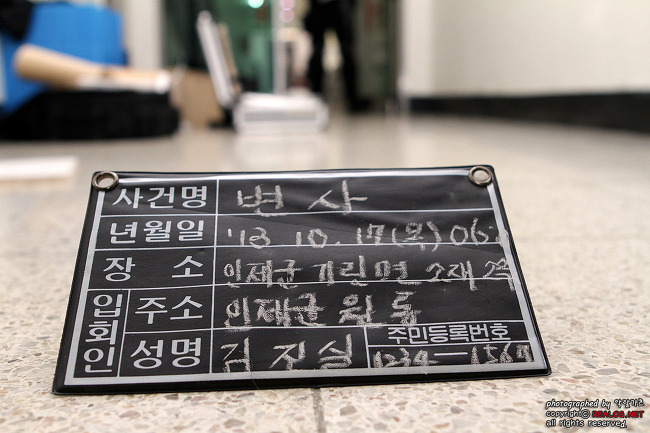 사건명 변사
년월일 '13 10. 17(목) 06:
장 소 인제군 기린면 소재 쪽
입회인 주소 인제군 원통
성명 김 진실 주민등록번호 1234-1567
photographed by
copyright© REALOG.NET
all rights reserved.